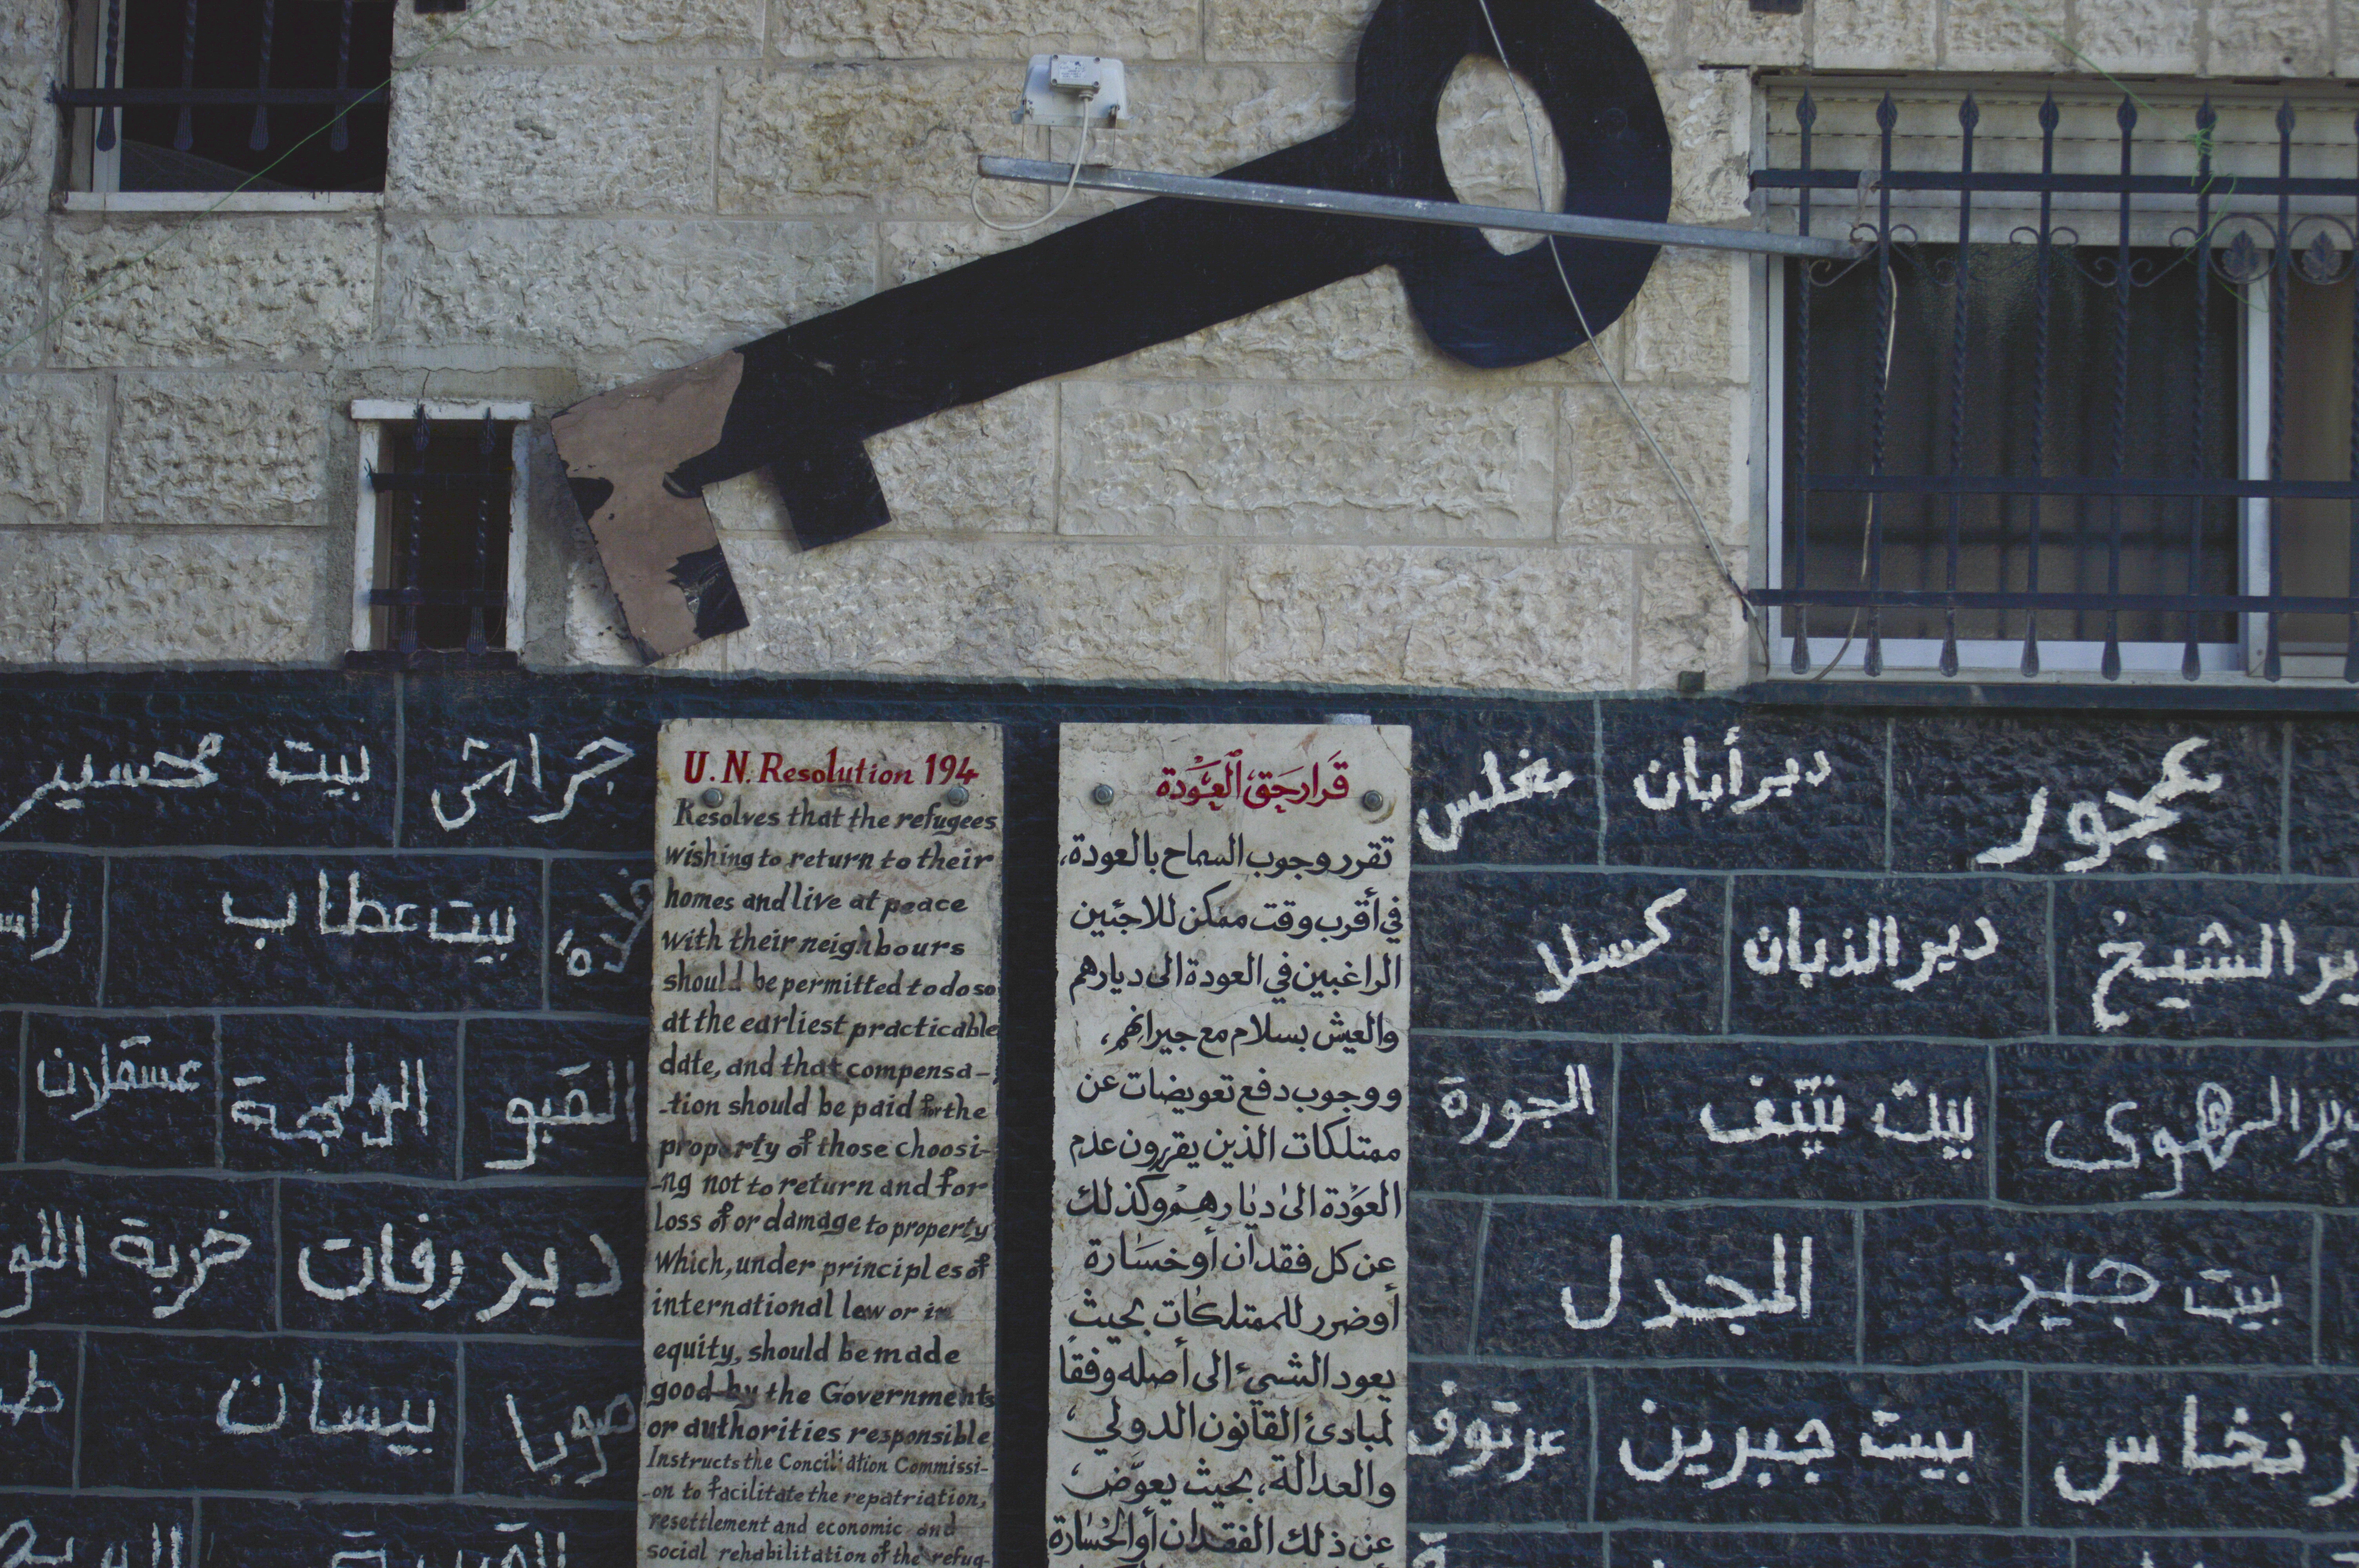 U.N. Resolution 194
Resolves that the refugees
wishing to return to their
homes and live at peace
with their neighbours
should be permitted to do so
at the earliest practicable
date, and that compensa-
-tion should be paid for the
property of those choosi-
-ng not to return and for
loss of or damage to property
which, under principles of
international law or in
equity, should be made
good by the Governments
or authorities responsible
Instructs the Conciliation Commissi-
-on to facilitate the repatriation,
resettlement and economic and
social rehabilitation of the refug-
قَرار حَق العَوْدة
تقرر وجوب السماح بالعودة،
في أقرب وقت ممكن للاجئين
الراغبين في العودة الى ديارهم
والعيش بسلام مع جيرانهم،
ووجوب دفع تعويضات عن
ممتلكات الذين يقررون عدم
العَوْدة الى ديارهِمْ وكذلك
عن كل فقدان أو خسَارة
أو ضرر للممتلكات بحيث
يعود الشيء الى أصله وفقاً
لمبادئ القانون الدولي،
والعدالة، بحيث يعوّض،
عن ذلك الفقدان أو الخسارة
جراش
بيت محسير
بيت عطاب
راس
القبو
الولجة
عسقلان
دير رفات
خربة اللو
صوبا
بيسان
عجور
دير أبان
مغلس
ير الشيخ
دير الذبان
كسلا
دير الهوى
بيت نتيف
الجورة
بيت جيز
المجدل
ر نخاس
بيت جبرين
عرتوف